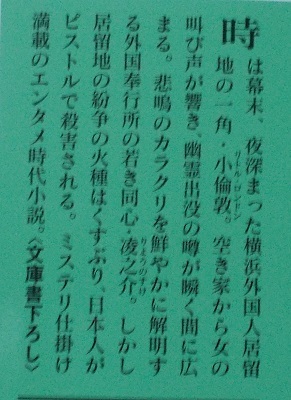 時は幕末、夜深まった横浜外国人居留
地の一角・小倫敦。空き家から女の
叫び声が響き、幽霊出没の噂が瞬く間に広
まる。悲鳴のカラクリを鮮やかに解明す
る外国奉行所の若き同心・凌之介。しかし
居留地の紛争の火種はくすぶり、日本人が
ピストルで殺害される。ミステリ仕掛け
満載のエンタメ時代小説。〈文庫書下ろし〉